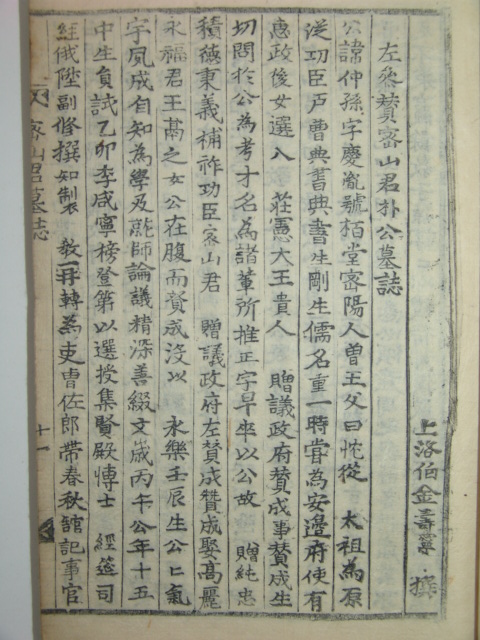 左叅賛密山君朴公墓誌
上洛伯金壽寧 撰
公諱仲孫字慶胤號栢堂密陽人曾王父曰忱從 太祖為原
從功臣户曹典書典書生剛生儒名重一時嘗為安邊府使有
惠政後女選入 莊憲大王貴人 贈議政府賛成事賛成生
切問於公為考才名為諸軰所推正字早卒以公故 贈純忠
積德秉義補祚功臣密山君 贈議政府左賛成賛成娶高麗
永福君王鬲之女公在腹而賛成沒以 永樂壬辰生公公氣
字夙成自知為學及就師論議精深善綴文歲丙午公年十五
中生員試乙卯李咸寧榜登第以選授集賢殿愽士 經筵司
經俄陞副修撰知製 教再轉為吏曹佐郎帶春秋舘記事官
密山君墓誌 十一